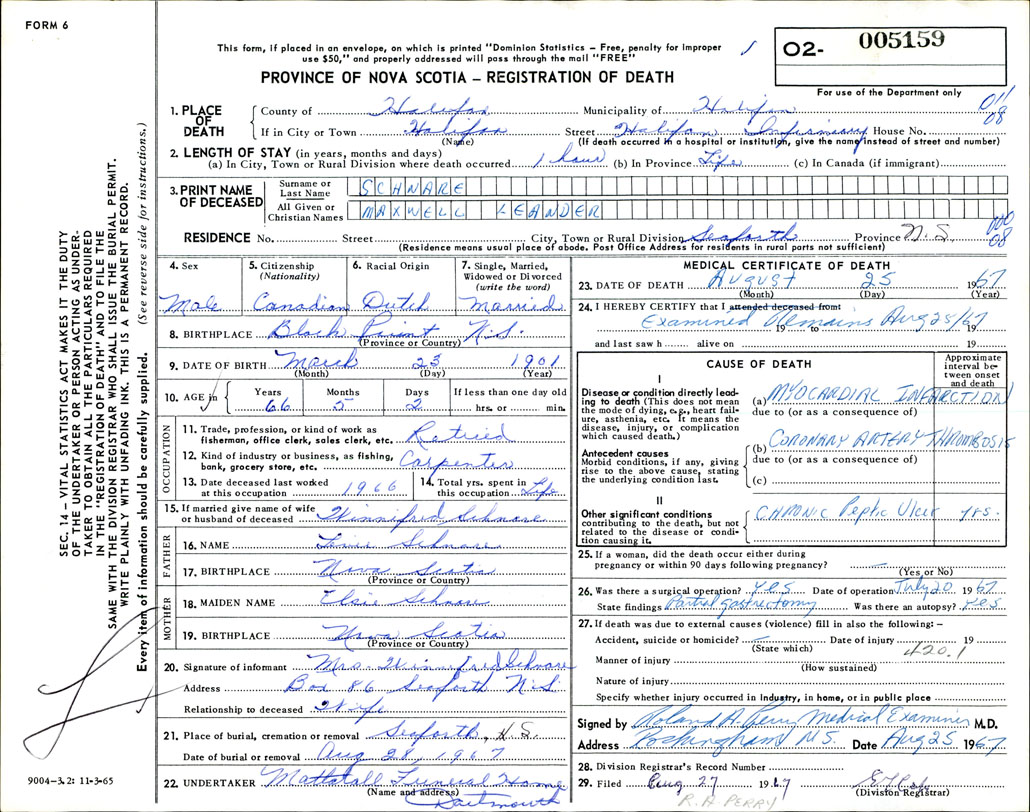 FORM 6
This form, if placed in an envelope, on which is printed "Dominion Statistics – Free, penalty for improper
use $50," and properly addressed will pass through the mail "FREE"
PROVINCE OF NOVA SCOTIA – REGISTRATION OF DEATH
O2- 005159
For use of the Department only
011
08
1. PLACE OF DEATH
County of Halifax Municipality of Halifax
If in City or Town Halifax Street Halifax Infirmary House No.
(Name) (If death occurred in a hospital or institution, give the name instead of street and number)
2. LENGTH OF STAY (in years, months and days)
(a) In City, Town or Rural Division where death occurred 1 hour (b) In Province Life (c) In Canada (if immigrant)
3. PRINT NAME OF DECEASED
Surname or Last Name SCHNARE
All Given or Christian Names MAXWELL LEANDER
000
08
RESIDENCE No. Street City, Town or Rural Division Seaforth Province N.S.
(Residence means usual place of abode. Post Office Address for residents in rural parts not sufficient)
4. Sex Male
5. Citizenship (Nationality) Canadian
6. Racial Origin Dutch
7. Single, Married, Widowed or Divorced (write the word) Married
8. BIRTHPLACE Black Point N.S.
(Province or Country)
9. DATE OF BIRTH March 23 1901
(Month) (Day) (Year)
10. AGE in Years 66 Months 5 Days 2 If less than one day hrs. or min.
OCCUPATION
11. Trade, profession, or kind of work as
fisherman, office clerk, sales clerk, etc. Retried
12. Kind of industry or business, as fishing,
bank, grocery store, etc. Carpenter
13. Date deceased last worked
at this occupation 1966
14. Total yrs. spent in
this occupation Life
15. If married give name of wife
or husband of deceased Winnifred Schnare
FATHER
16. NAME Schnare
17. BIRTHPLACE Nova Scotia
(Province or Country)
MOTHER
18. MAIDEN NAME Elsie Schnare
19. BIRTHPLACE Nova Scotia
(Province or Country)
20. Signature of informant Mrs. Winnifred Schnare
Address Box 86 Seaforth N.S.
Relationship to deceased Wife
21. Place of burial, cremation or removal Seaforth, N.S.
Date of burial or removal Aug 28, 1967
22. UNDERTAKER Mattatall Funeral Home
(Name and address) Dartmouth
MEDICAL CERTIFICATE OF DEATH
23. DATE OF DEATH AUGUST 25 1967
(Month) (Day) (Year)
24. I HEREBY CERTIFY that I attended deceased from
Examined Remains Aug 25/67
19 to 19
and last saw h alive on 19
CAUSE OF DEATH
Approximate interval between onset and death
I
Disease or condition directly leading to death (This does not mean the mode of dying, e.g., heart failure, asthenia, etc. It means the disease, injury, or complication which caused death.)
(a) MYOCARDIAL INFARCTION
due to (or as a consequence of)
Antecedent causes
Morbid conditions, if any, giving rise to the above cause, stating the underlying condition last.
(b) CORONARY ARTERY THROMBOSIS
due to (or as a consequence of)
(c)
II
Other significant conditions
contributing to the death, but not related to the disease or condition causing it.
CHRONIC Peptic Ulcer yrs.
25. If a woman, did the death occur either during
pregnancy or within 90 days following pregnancy? –
(Yes or No)
26. Was there a surgical operation? yes Date of operation July 20 1967
State findings Partial gastrectomy Was there an autopsy? yes
27. If death was due to external causes (violence) fill in also the following: –
Accident, suicide or homicide? – Date of injury 19
(State which)
420.1
Manner of injury
(How sustained)
Nature of injury
Specify whether injury occurred in Industry, in home, or in public place
Signed by Roland A. Perry Medical Examiner M.D.
Address Rockingham N.S. Date Aug 25 1967
28. Division Registrar's Record Number
29. Filed Aug 27 1967
(Division Registrar)
R. A. PERRY
SEC. 14 – VITAL STATISTICS ACT MAKES IT THE DUTY
OF THE UNDERTAKER OR PERSON ACTING AS UNDER-
TAKER TO OBTAIN ALL THE PARTICULARS REQUIRED
IN THE "REGISTRATION OF DEATH" AND TO FILE THE
SAME WITH THE DIVISION REGISTRAR WHO SHALL ISSUE THE BURIAL PERMIT.
WRITE PLAINLY WITH UNFADING INK. THIS IS A PERMANENT RECORD.
Every item of information should be carefully supplied. (See reverse side for instructions.)
9004–3.2: 11-3-65